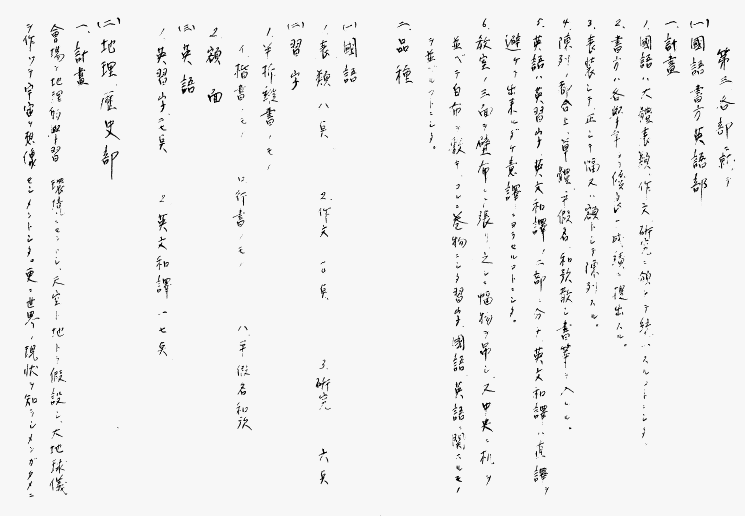 第三 各部ニ就テ
(一) 國語 書方 英語部
一、計畫
1. 國語ハ大體表類、作文、研究ニ
2. 書方ハ各學年ヨリ優良ノ成績ヲ提出スル。
3. 表装シテ正シキ幅又ハ額トシテ陳列スル。
4. 陳列ノ都合上、草體、平假名、和歌
5. 英語ハ英習字、英文和譯ノ二部ニ分ケ 英文和譯ハ直譯ヲ
避ケテ出來ルダケ意譯
6. 教室ノ三面ヲ壁布ニテ張リ、之ニ幅物ヲ吊シ、又中央ニ机ヲ
並ベテ白布ヲ敷キ、コレニ巻物ニシタ習字、國語、英語ニ關スルモノ
ヲ並
二、品種
(一) 國語
1. 表類 八点 2. 作文 一〇点 3. 研究 六点
(二) 習字
1. 半折縦書ノモノ
イ、楷書ノモノ ロ、行書ノモノ ハ、平假名和歌
2. 額面
(三) 英語
1. 英習字 2. 英文和譯 一七点
(二) 地理、歴史部
一、計畫
會場ヲ地理的學習ノ環境ニセシメ、天空ト地トヲ假設シ、大地球儀
ヲ作リテ宇宙ヲ想像セシメントシタ。更ニ世界ノ現狀ヲ知ラシメンガタメニ